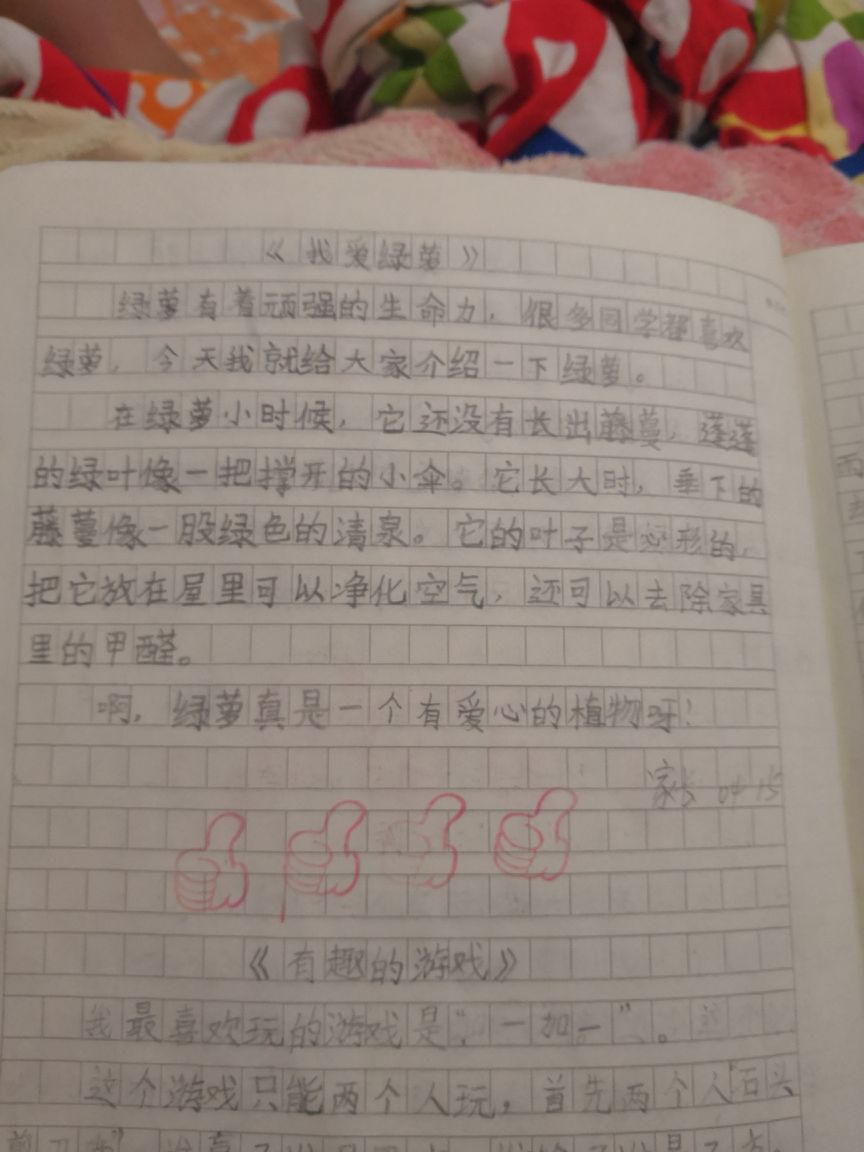 《我爱绿萝》
绿萝有着顽强的生命力，很多同学都喜欢
绿萝，今天我就给大家介绍一下绿萝。
在绿萝小时候，它还没有长出藤蔓，蓬蓬
的绿叶像一把撑开的小伞。它长大时，垂下的
藤蔓像一股绿色的清泉。它的叶子是心形的，
把它放在屋里可以净化空气，还可以去除家具
里的甲醛。
啊，绿萝真是一个有爱心的植物呀！
家长 04 15
《有趣的游戏》
我最喜欢玩的游戏是“一加一”。
这个游戏只能两个人玩，首先两个人“石头